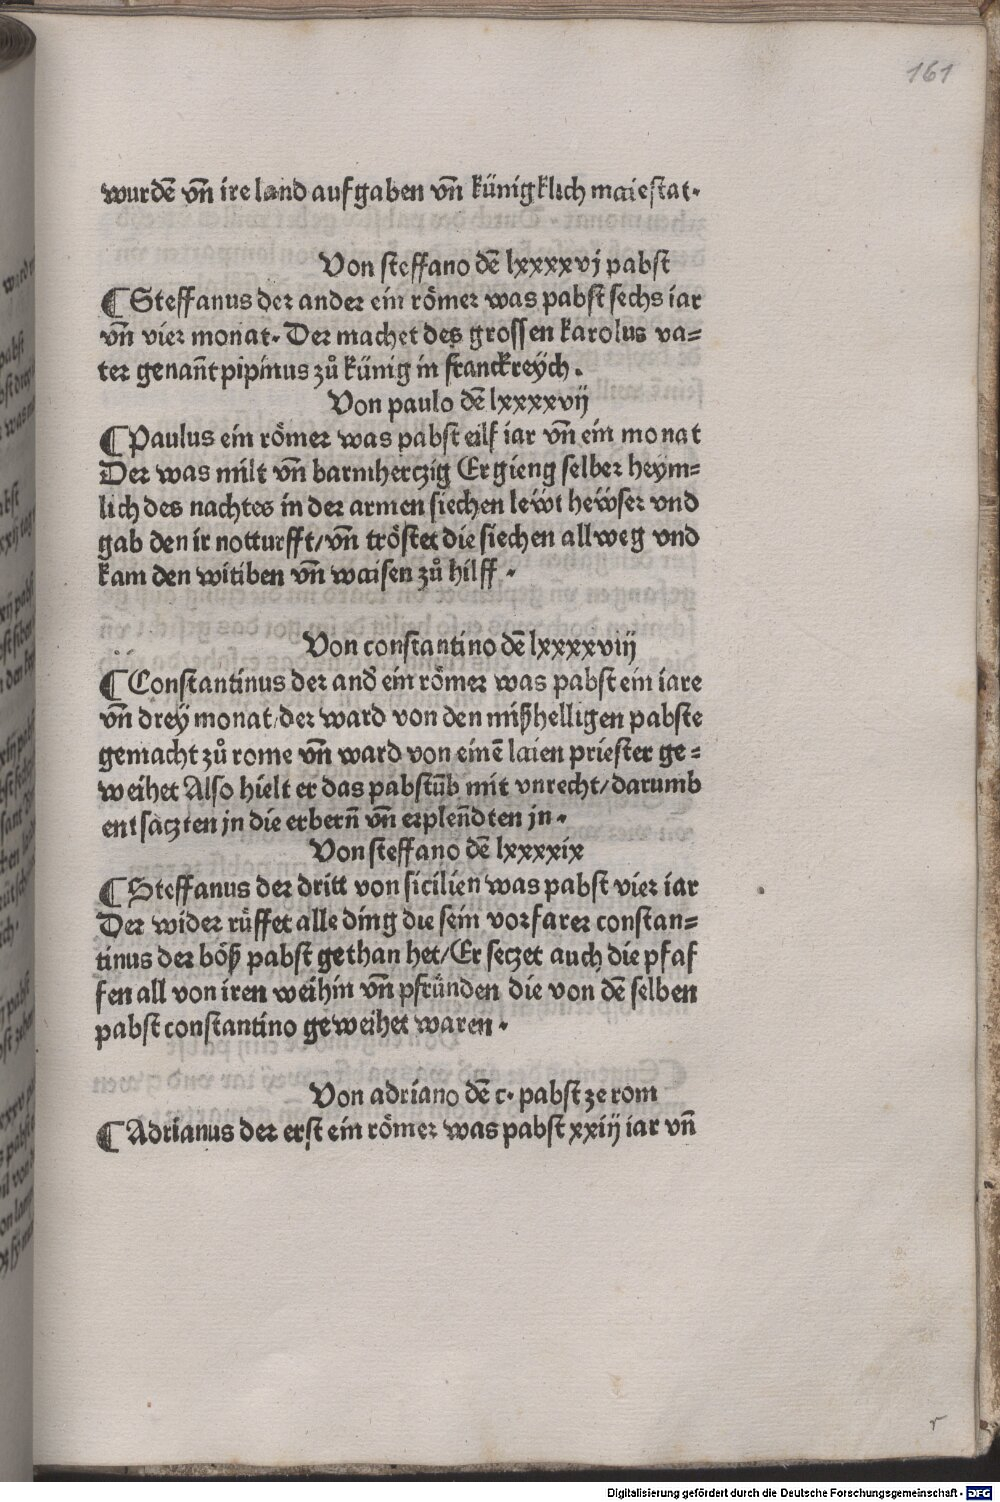 161
wurdē vn̄ ire land aufgaben vn̄ künigklich maiestat·
Von steffano dē lxxxxvj pabst
¶ Steffanus der ander ein römer was pabst sechs iar
vn̄ vier monat· Der machet des grossen karolus va=
ter genan̄t pipinus zů künig in franckreÿch·
Von paulo dē lxxxxvij
¶ Paulus ein römer was pabst eilf iar vn̄ ein monat
Der was milt vn̄ barmherczig Er gieng selber heÿm=
lich des nachtes in der armen siechen lewt hewser vnd
gab den ir notturfft/ vn̄ tröstet die siechen allweg vnd
kam den witiben vn̄ waisen zů hilff·
Von constantino dē lxxxxviij
¶ Constantinus der and̕ ein römer was pabst ein iare
vn̄ dreÿ monat/ der ward von den mißhelligen pabste
gemacht zů rome vn̄ ward von einē laien priester ge=
weihet Also hielt er das pabstūb mit vnrecht/ darumb
entsäczten jn die erbern̄ vn̄ erplen̄dten jn·
Von steffano dē lxxxxix
¶ Steffanus der dritt von sicilien was pabst vier iar
Der wider rüffet alle ding die sein vorfarer constan=
tinus der böß pabst gethan het/ Er seczet auch die pfaf
fen all von iren weihin vn̄ pfründen die von dē selben
pabst constantino geweihet waren·
Von adriano dē c· pabst ze rom
¶ Adrianus der erst ein römer was pabst xxiij iar vn̄
r
Digitalisierung gefördert durch die Deutsche Forschungsgemeinschaft - DFG